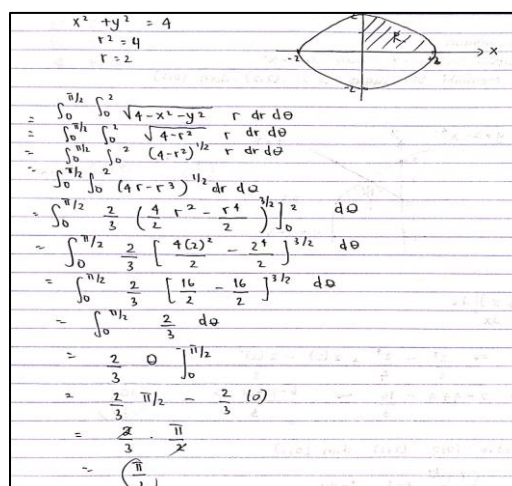 x² + y² = 4
r² = 4
r = 2
2 R x
-2 +2
-2
= ∫₀^π/2 ∫₀² √4-x²-y² r dr dθ
= ∫₀^π/2 ∫₀² √4-r² r dr dθ
= ∫₀^π/2 ∫₀² (4-r²)^1/2 r dr dθ
= ∫₀^π/2 ∫₀² (4r-r³)^1/2 dr dθ
= ∫₀^π/2 2/3 (4/2 r² - r⁴/2)^3/2 ]₀² dθ
= ∫₀^π/2 2/3 [4(2)²/2 - 2⁴/2]^3/2 dθ
= ∫₀^π/2 2/3 [16/2 - 16/2]^3/2 dθ
= ∫₀^π/2 2/3 dθ
= 2/3 θ ]₀^π/2
= 2/3 π/2 - 2/3 (0)
= 2/3 · π/2
= π